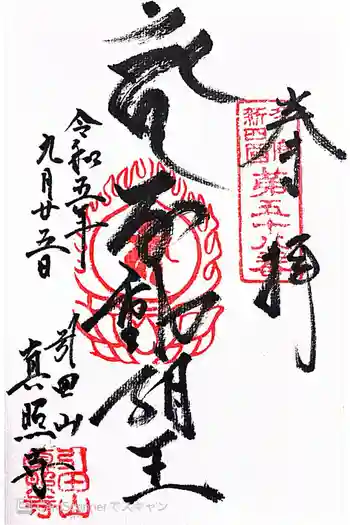 奉拝
新四国
第五十八番
不動明王
令和五年
九月廿五日
引田山
真照寺
引田山
真照寺
でスキャン